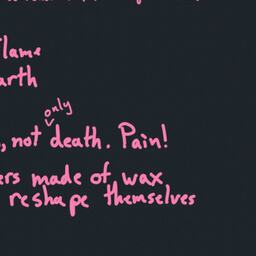 flame
arth
only
, not death. Pain!
ers made of wax
reshape themselves